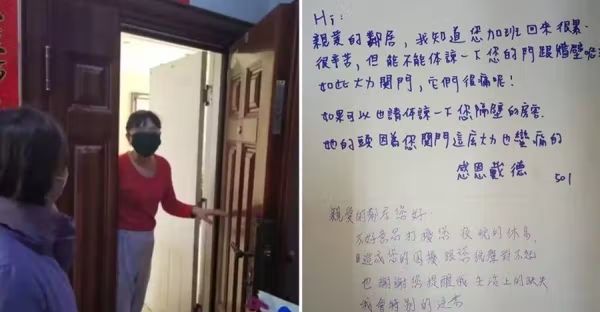 Hi:
親愛的鄰居,我知道您加班回來很累.
很辛苦,但能不能体諒一下您的門跟牆壁呢
如此大力関門,它們很痛呢!
如果可以也請体諒一下您隔壁的房客.
她的頭因為您関門這広大力也蠻痛的
感恩戴德
501
親愛的鄰居您好
不好意思打擾您夜晚的休息,
造成您的困擾跟您說聲對不起
也謝謝您提醒我生活上的缺失
我會特別的注意